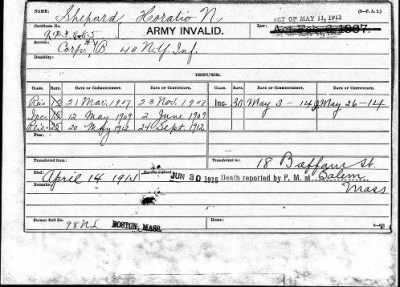 NAME: Shepard Horatio N. (3—P. A. I.)
Certificate No. ARMY INVALID. Law: ACT OF MAY 11, 1912
Act Feb. 6, 1907.
Service: Corp'l B 40 N.Y. Inf.
Disability:
CLASS. RATE. DATE OF COMMENCEMENT. DATE OF CERTIFICATE. CLASS. RATE. DATE OF COMMENCEMENT. DATE OF CERTIFICATE.
12 21 Mar. 1907 23 Nov. 1907 Inc. 30 May 3-14 May 26-14
Inc. 15 12 May 1909 2 June 1909
20 20 May 1912 24 Sept. 1912
Transferred from Transferred to 18 St.
Died: April 14 JUN 30 1926 Death reported by P. M. at Salem
Remarks: Mass
Former Roll No. BOSTON, MASS. Home: